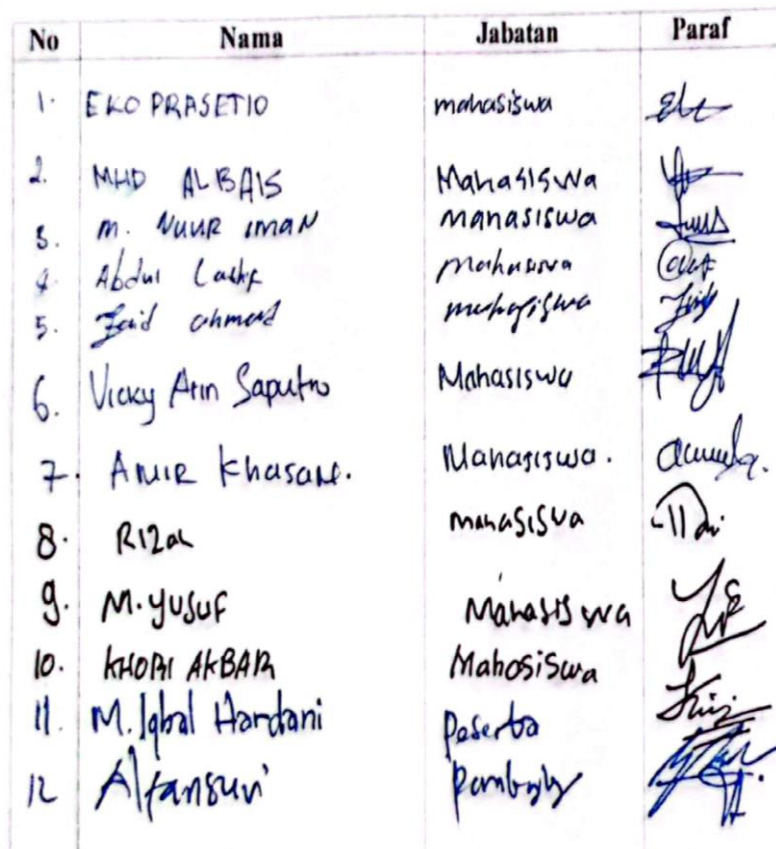 No Nama Jabatan Paraf
1. EKO PRASETIO mahasiswa
2. MHD ALBAIS Mahasiswa
3. M. NUUR IMAN mahasiswa
4. Abdul mahasiswa
5. Zaid ahmad mahasiswa
6. Vicky Arin Saputro Mahasiswa
7. AMIR Khasan. Mahasiswa.
8. RIZAL mahasiswa
9. M. YUSUF Mahasiswa
10. KHOBI AKBAR Mahasiswa
11. M. Iqbal Hardani Peserta
12 Alfansuri